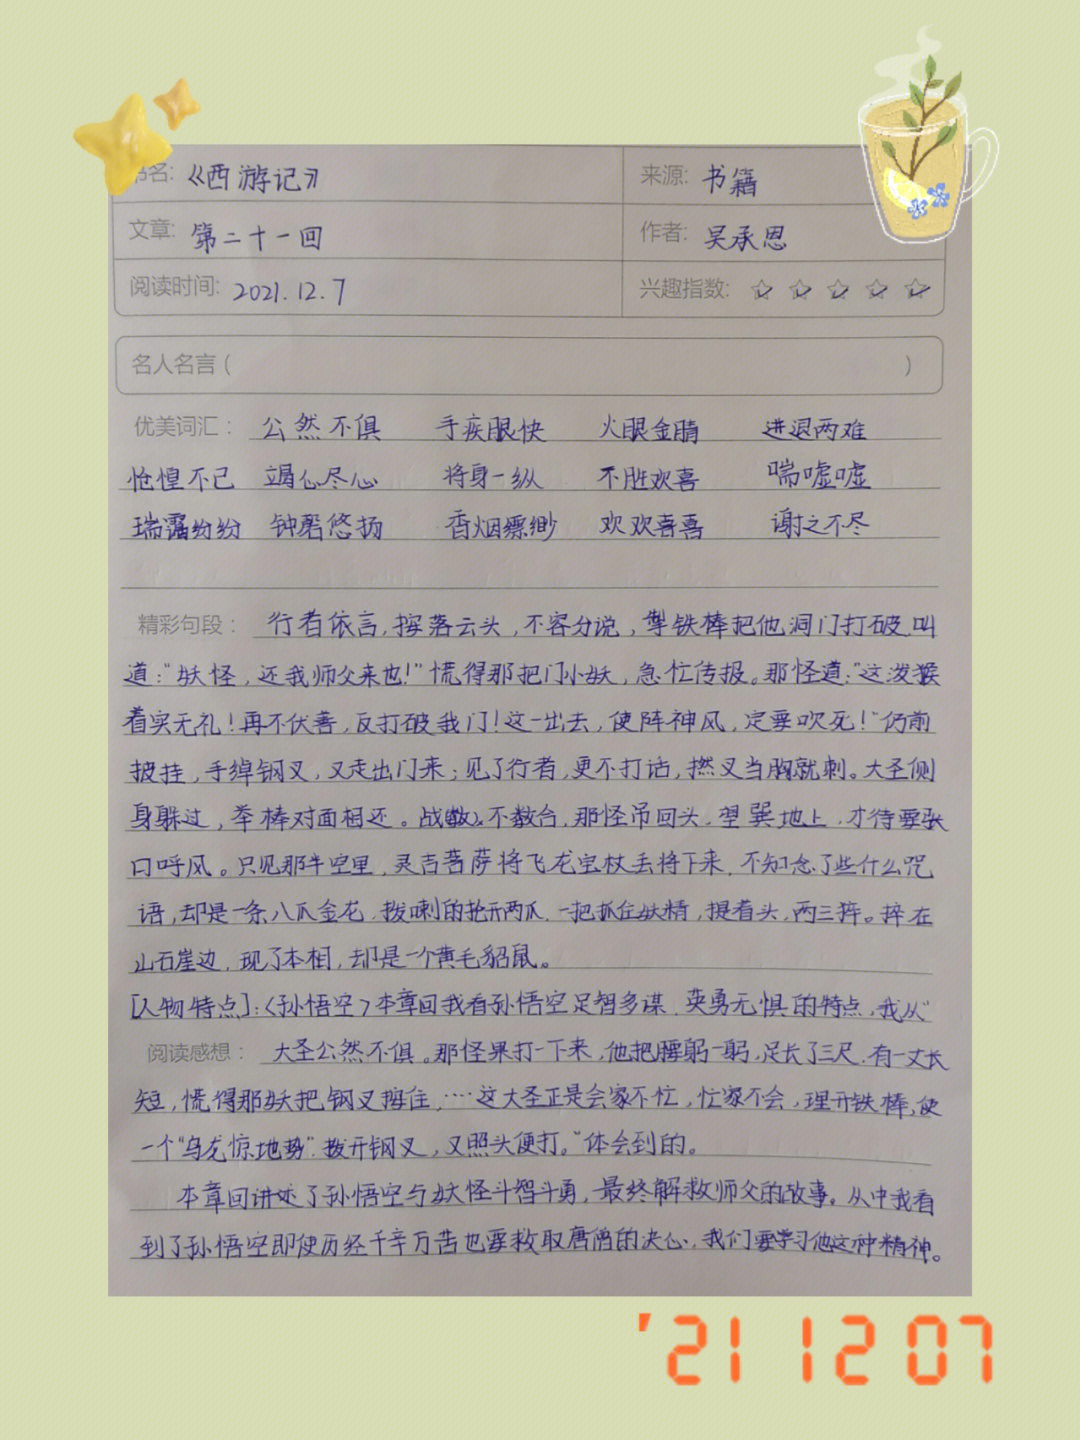 书名: 《西游记》 来源: 书籍
文章: 第二十一回 作者: 吴承恩
阅读时间: 2021.12.7 兴趣指数: ☆ ☆ ☆ ☆ ☆
名人名言 ( )
优美词汇: 公然不惧 手疾眼快 火眼金睛 进退两难
怆惶不已 竭心尽心 将身一纵 不胜欢喜 喘嘘嘘
瑞霭纷纷 钟磬悠扬 香烟缥缈 欢欢喜喜 谢之不尽
精彩句段: 行者依言,按落云头,不容分说,掣铁棒把他洞门打破,叫
道:“妖怪,还我师父来也!”慌得那把门小妖,急忙传报。那怪道:“这泼猴
着实无礼!再不伏善,反打破我门!这一出去,使阵神风,定要吹死!”仍前
披挂,手绰钢叉,又走出门来;见了行者,更不打话,撚叉当胸就刺。大圣侧
身躲过,举棒对面相还。战不数合,那怪吊回头,望巽地上,才待要张
口呼风。只见那半空里,灵吉菩萨将飞龙宝杖丢将下来,不知念了些什么咒
语,却是一条八爪金花,拨喇的抢开两爪,一把抓住妖精,提着头,两三捽。捽在
山石崖边,现了本相,却是一个黄毛貂鼠。
[人物特点]:〈孙悟空〉本章回我看孙悟空足智多谋,英勇无惧的特点,我从“
阅读感想: 大圣公然不惧。那怪果打一下来,他把腰躬一躬,足长了三尺,有一丈长
短,慌得那妖把钢叉按住,…这大圣正是会家不忙,忙家不会,理开铁棒,使
一个“乌龙惊地势”拨开钢叉,又照头便打。”体会到的。
本章回讲述了孙悟空与妖怪斗智斗勇,最终解救师父的故事。从中我看
到了孙悟空即使历经千辛万苦也要救取唐僧的决心,我们要学习他这种精神。
'21 12 07